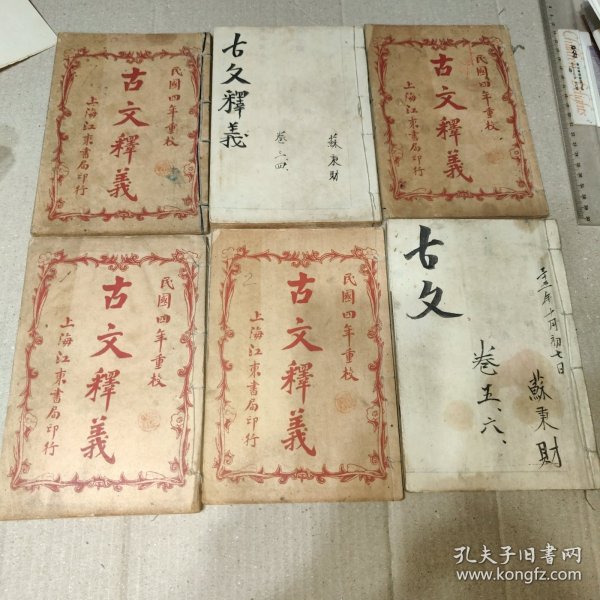 民國四年重校
古文釋義
上海江東書局印行
古文釋義
卷三、四、
蘇秉財
民國四年重校
古文釋義
上海江東書局印行
民國四年重校
古文釋義
上海江東書局印行
民國四年重校
古文釋義
上海江東書局印行
2
古文
卷五、六、
年十月初七日
蘇秉財
孔夫子旧书网
www.kongfz.com